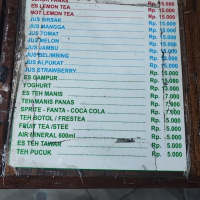 ES LEMON TEA Rp. 15.000
HOT LEMON TEA Rp. 15.000
JUS SIRSAK Rp. 15.000
JUS MANGGA Rp. 15.000
JUS TOMAT Rp. 15.000
JUS MELON Rp. 15.000
JUS JAMBU Rp. 15.000
JUS BELIMBING Rp. 15.000
JUS ALPUKAT Rp. 15.000
JUS STRAWBERRY Rp. 15.000
ES CAMPUR Rp. 15.000
YOGHURT Rp.
ES TEH MANIS Rp. 7.000
TEH MANIS PANAS Rp. 7.000
SPRITE - FANTA - COCA COLA Rp.
TEH BOTOL / FRESTEA Rp. 5.000
FRUIT TEA /STEE Rp. 5.000
AIR MINERAL 600ml Rp. 5.000
ES TEH TAWAR Rp. 5.000
TEH PUCUK Rp. 5.000